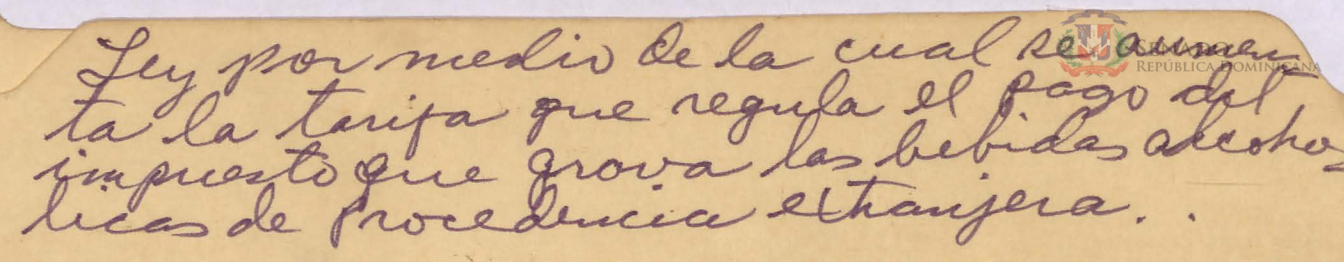 Ley por medio de la cual se aumen
ta la tarifa que regula el pago del
impuesto que grava las bebidas alcoho
licas de procedencia extranjera. .
SENADO
REPÚBLICA DOMINICANA